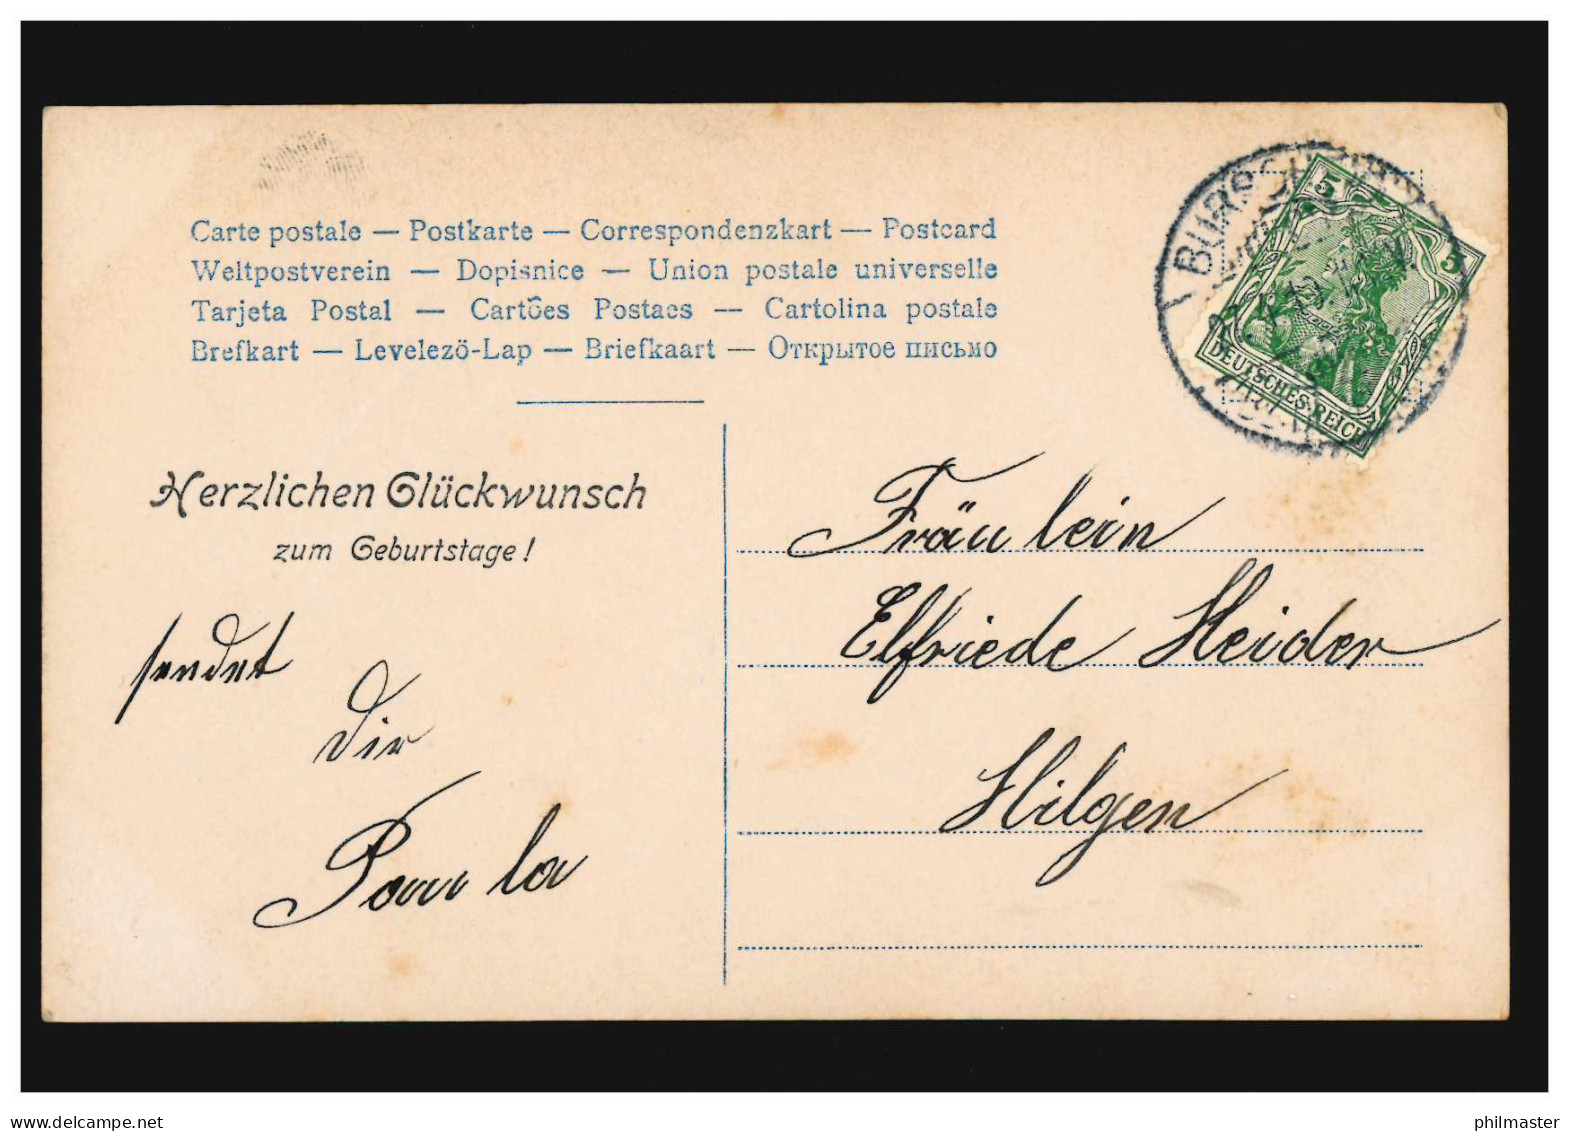 Carte postale — Postkarte — Correspondenzkart — Postcard
Weltpostverein — Dopisnice — Union postale universelle
Tarjeta Postal — Cartões Postaes — Cartolina postale
Brefkart — Levelező-Lap — Briefkaart — Открытое письмо
5
5
DEUTSCHES REICH
Herzlichen Glückwunsch
zum Geburtstage!
sendet
Dir
Paula
Fräulein
Elfriede Heider
Hilgen
www.delcampe.net
philmaster